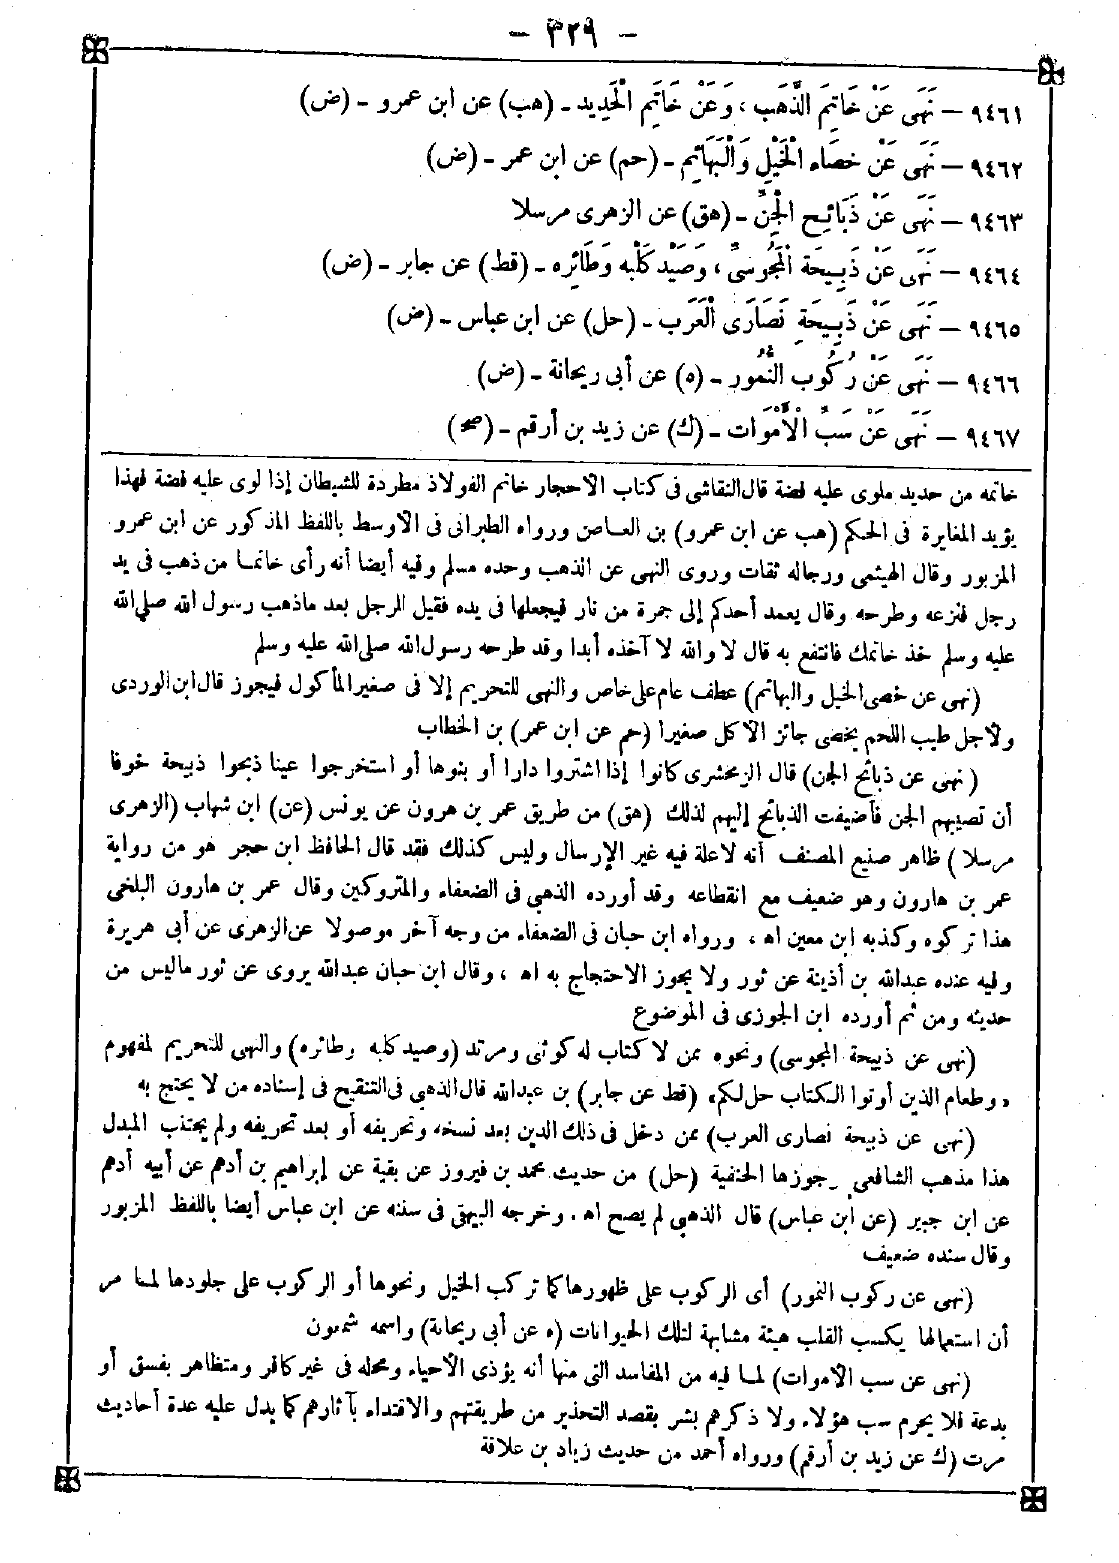 - ٣٢٩ -
٩٤٦١ — نَهَى عَنْ خَاتِمِ الذَّهَبِ ، وَعَنْ خَاتِمِ الْحَدِيدِ - (هب) عن ابن عمرو - (ض)
٩٤٦٢ — نَهَى عَنْ خِصَاءِ الْخَيْلِ وَالْبَهَائِمِ - (حم) عن ابن عمر - (ض)
٩٤٦٣ — نَهَى عَنْ ذَبَائِحِ الْجِنِّ - (هق) عن الزهرى مرسلا
٩٤٦٤ — نَهَى عَنْ ذَبِيحَةِ الْمَجُوسِىِّ ، وَصَيْدِ كَلْبِهِ وَطَائِرِهِ - (قط) عن جابر - (ض)
٩٤٦٥ — نَهَى عَنْ ذَبِيحَةِ نَصَارَى الْعَرَبِ - (حل) عن ابن عباس - (ض)
٩٤٦٦ — نَهَى عَنْ رُكُوبِ النُّمُورِ - (ه) عن أبى ريحانة - (ض)
٩٤٦٧ — نَهَى عَنْ سَبِّ الْأَمْوَاتِ - (ك) عن زيد بن أرقم - (صح)
خاتمه من حديد ملوى عليه فضة قال النقاشى فى كتاب الاحجار خاتم الفولاذ مطردة للشيطان إذا لوى عليه فضة فهذا
يؤيد المغايرة فى الحكم (هب عن ابن عمرو) بن العاص ورواه الطبرانى فى الاوسط باللفظ المذكور عن ابن عمرو
المزبور وقال الهيثمى ورجاله ثقات وروى النهى عن الذهب وحده مسلم وفيه أيضا أنه رأى خاتما من ذهب فى يد
رجل فنزعه وطرحه وقال يعمد أحدكم إلى جمرة من نار فيجعلها فى يده فقيل للرجل بعد ماذهب رسول الله صلى الله
عليه وسلم خذ خاتمك فانتفع به قال لا والله لا آخذه أبدا وقد طرحه رسول الله صلى الله عليه وسلم
(نهى عن خصى الخيل والبهائم) عطف عام على خاص والنهى للتحريم إلا فى صغير المأكول فيجوز قال ابن الوردى
ولاجل طيب اللحم يخصى جائز الاكل صغيرا (حم عن ابن عمر) بن الخطاب
(نهى عن ذبائح الجن) قال الزمخشرى كانوا إذا اشتروا دارا أو بنوها أو استخرجوا عينا ذبحوا ذبيحة خوفا
أن تصيبهم الجن فأضيفت الذبائح إليهم لذلك (هق) من طريق عمر بن هرون عن يونس (عن) ابن شهاب (الزهرى
مرسلا) ظاهر صنيع المصنف أنه لاعلة فيه غير الإرسال وليس كذلك فقد قال الحافظ ابن حجر هو من رواية
عمر بن هارون وهو ضعيف مع انقطاعه وقد أورده الذهبى فى الضعفاء والمتروكين وقال عمر بن هارون البلخى
هذا تركوه وكذبه ابن معين اه ، ورواه ابن حبان فى الضعفاء من وجه آخر موصولا عن الزهرى عن أبى هريرة
وفيه عنده عبدالله بن أذينة عن ثور ولا يجوز الاحتجاج به اه ، وقال ابن حبان عبدالله يروى عن ثور ماليس من
حديثه ومن ثم أورده ابن الجوزى فى الموضوع
(نهى عن ذبيحة المجوسى) ونحوه ممن لا كتاب له كوثنى ومرتد (وصيد كلبه وطائره) والنهى للتحريم لمفهوم
«وطعام الذين أوتوا الكتاب حل لكم» (قط عن جابر) بن عبدالله قال الذهبى فى التنقيح فى إسناده من لا يحتج به
(نهى عن ذبيحة نصارى العرب) ممن دخل فى ذلك الدين بعد نسخه وتحريفه أو بعد تحريفه ولم يجتنب المبدل
هذا مذهب الشافعى وجوزها الحنفية (حل) من حديث محمد بن فيروز عن بقية عن إبراهيم بن أدهم عن أبيه أدهم
عن ابن جبير (عن ابن عباس) قال الذهبى لم يصح اه . وخرجه البيهقى فى سننه عن ابن عباس أيضا باللفظ المزبور
وقال سنده ضعيف
(نهى عن ركوب النمور) أى الركوب على ظهورها كما تركب الخيل ونحوها أو الركوب على جلودها لما مر
أن استعمالها يكسب القلب هيئة مشابهة لتلك الحيوانات (ه عن أبى ريحانة) واسمه شمعون
(نهى عن سب الاموات) لما فيه من المفاسد التى منها أنه يؤذى الأحياء ومحله فى غير كافر ومتظاهر بفسق أو
بدعة فلا يحرم سب هؤلاء ولا ذكرهم بشر بقصد التحذير من طريقتهم والاقتداء بآثارهم كما يدل عليه عدة أحاديث
مرت (ك عن زيد بن أرقم) ورواه أحمد من حديث زياد بن علاقة